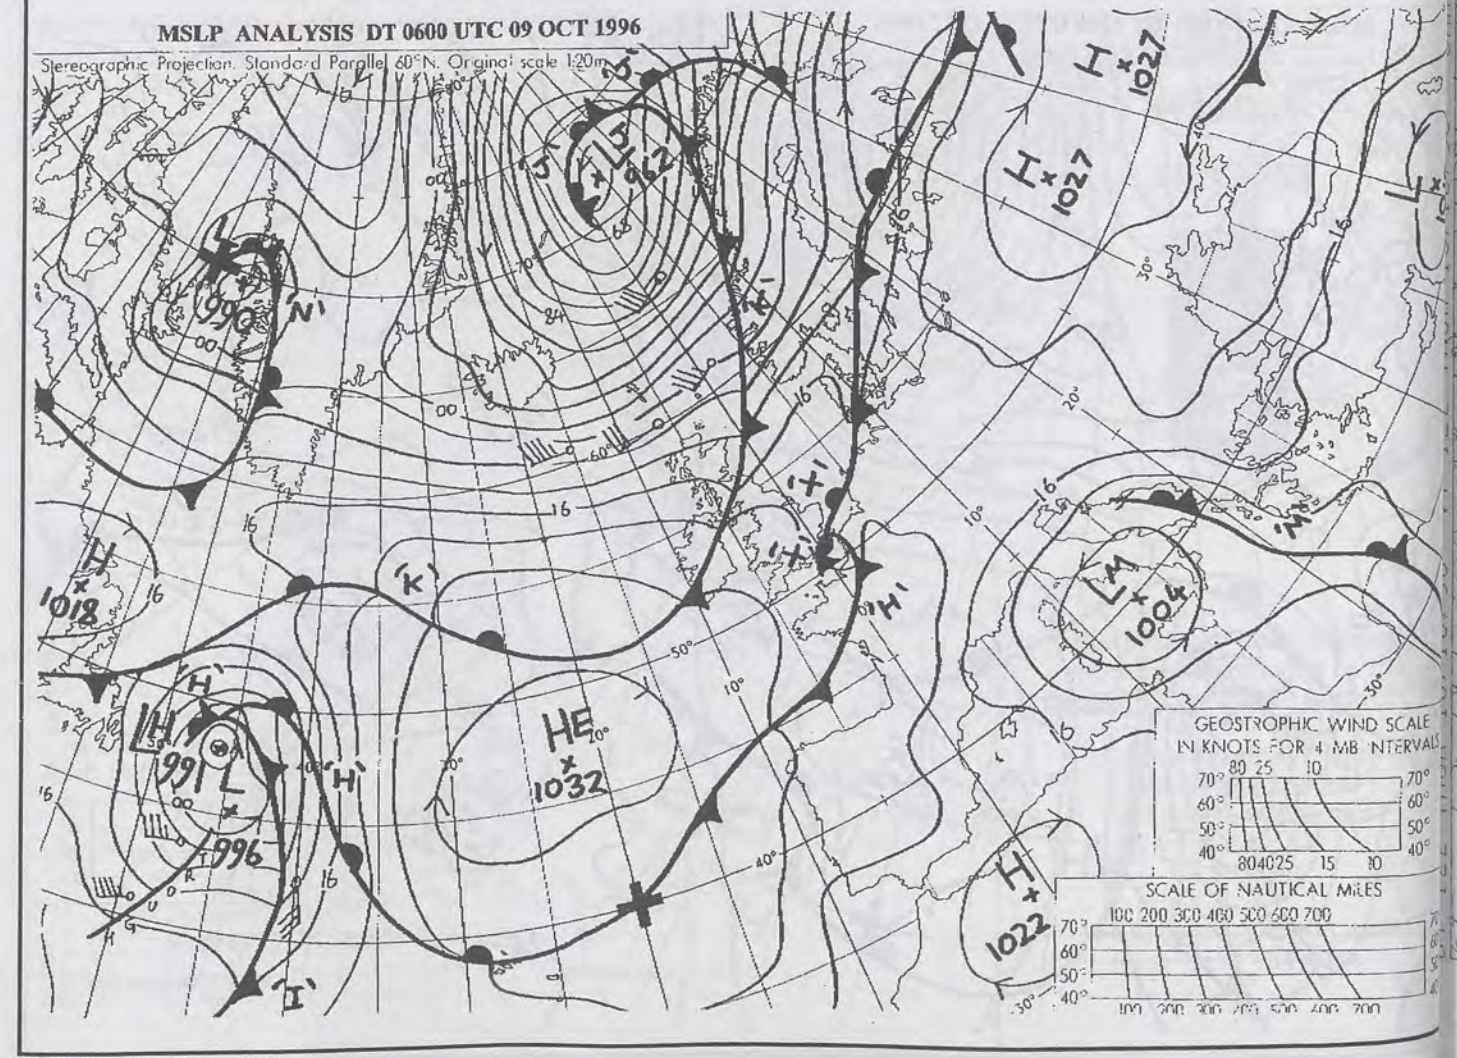 MSLP ANALYSIS DT 0600 UTC 09 OCT 1996
Stereographic Projection. Standard Parallel 60°N. Original scale 1:20m
'J'
H
1027
'J'
LJ
962
H
1027
L
16
00
68
70°
L
990
'N'
00
84
'K'
30°
16
00
16
20°
60°
16
'I'
16
10°
'M'
H
1018
16
'K'
'H'
'H'
LM
1004
50°
10°
'H'
LH
991
L
996
00
'H'
HE
1032
20°
30°
16
16
T
R
O
U
G
H
40°
'I'
H
1022
30°
GEOSTROPHIC WIND SCALE
IN KNOTS FOR 4 MB INTERVALS
80 25 10
70° 70°
60° 60°
50° 50°
40° 40°
80 40 25 15 10
SCALE OF NAUTICAL MILES
100 200 300 400 500 600 700
70°
60°
50°
40°
100 200 300 400 500 600 700